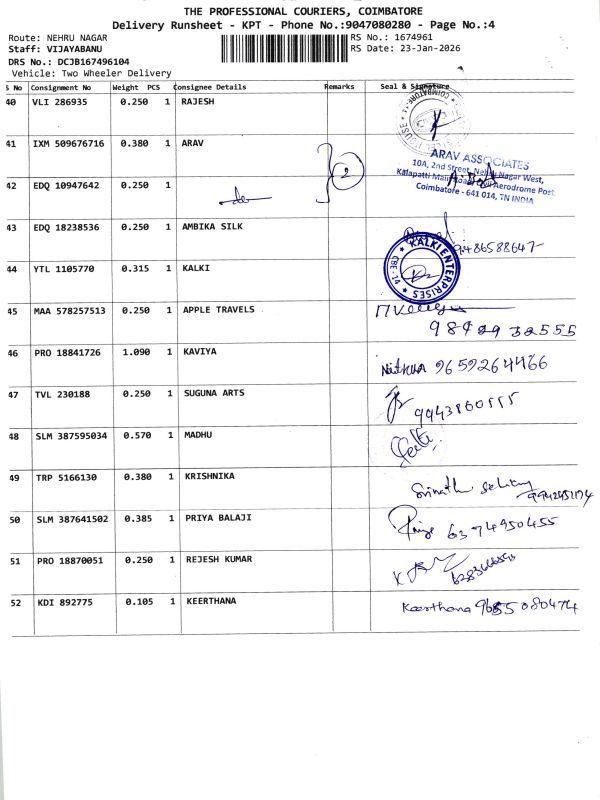 THE PROFESSIONAL COURIERS, COIMBATORE
Delivery Runsheet - KPT - Phone No.:9047080280 - Page No.:4
Route: NEHRU NAGAR RS No.: 1674961
Staff: VIJAYABANU RS Date: 23-Jan-2026
DRS No.: DCJB167496104
Vehicle: Two Wheeler Delivery
S No Consignment No Weight PCS Consignee Details Remarks Seal & Signature
40 VLI 286935 0.250 1 RAJESH
COIMBATORE
41 IXM 509676716 0.380 1 ARAV
ARAV ASSOCIATES
10A, 2nd Street, Nehru Nagar West,
Kalapatti Main Road, Civil Aerodrome Post,
Coimbatore - 641 014, TN INDIA
2
42 EDQ 10947642 0.250 1
43 EDQ 18238536 0.250 1 AMBIKA SILK
9486588647
44 YTL 1105770 0.315 1 KALKI
KALKI ENTERPRISES
CBE-14
45 MAA 578257513 0.250 1 APPLE TRAVELS
98429 32555
46 PRO 18841726 1.090 1 KAVIYA
9659264466
47 TVL 230188 0.250 1 SUGUNA ARTS
48 SLM 387595034 0.570 1 MADHU
49 TRP 5166130 0.380 1 KRISHNIKA
Srinath
50 SLM 387641502 0.385 1 PRIYA BALAJI
Priya 6374950455
51 PRO 18870051 0.250 1 REJESH KUMAR
52 KDI 892775 0.105 1 KEERTHANA
Keerthana 9655080474